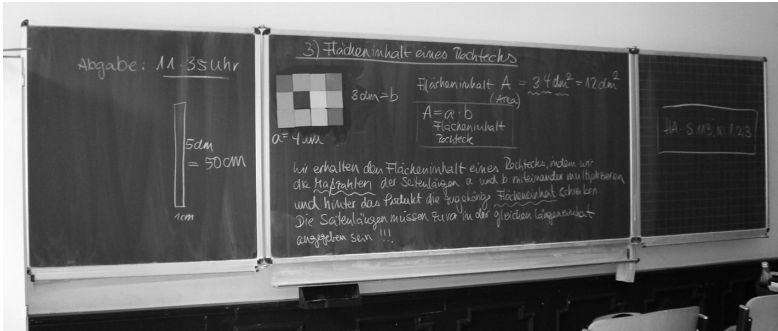 Abgabe: 11.35 Uhr
5dm
= 50cm
1cm
3) Flächeninhalt eines Rechtecks
3dm=b
Flächeninhalt A = 3·4 dm² = 12dm²
(Area)
A=a·b
Flächeninhalt
Rechteck
Wir erhalten den Flächeninhalt eines Rechtecks, indem wir
die Maßzahlen der Seitenlängen a und b miteinander multiplizieren
und hinter das Produkt die zugehörige Flächeneinheit schreiben.
Die Seitenlängen müssen zuvor in der gleichen Längeneinheit
angegeben sein !!!
HA: S. 113, Nr. 1,2,3